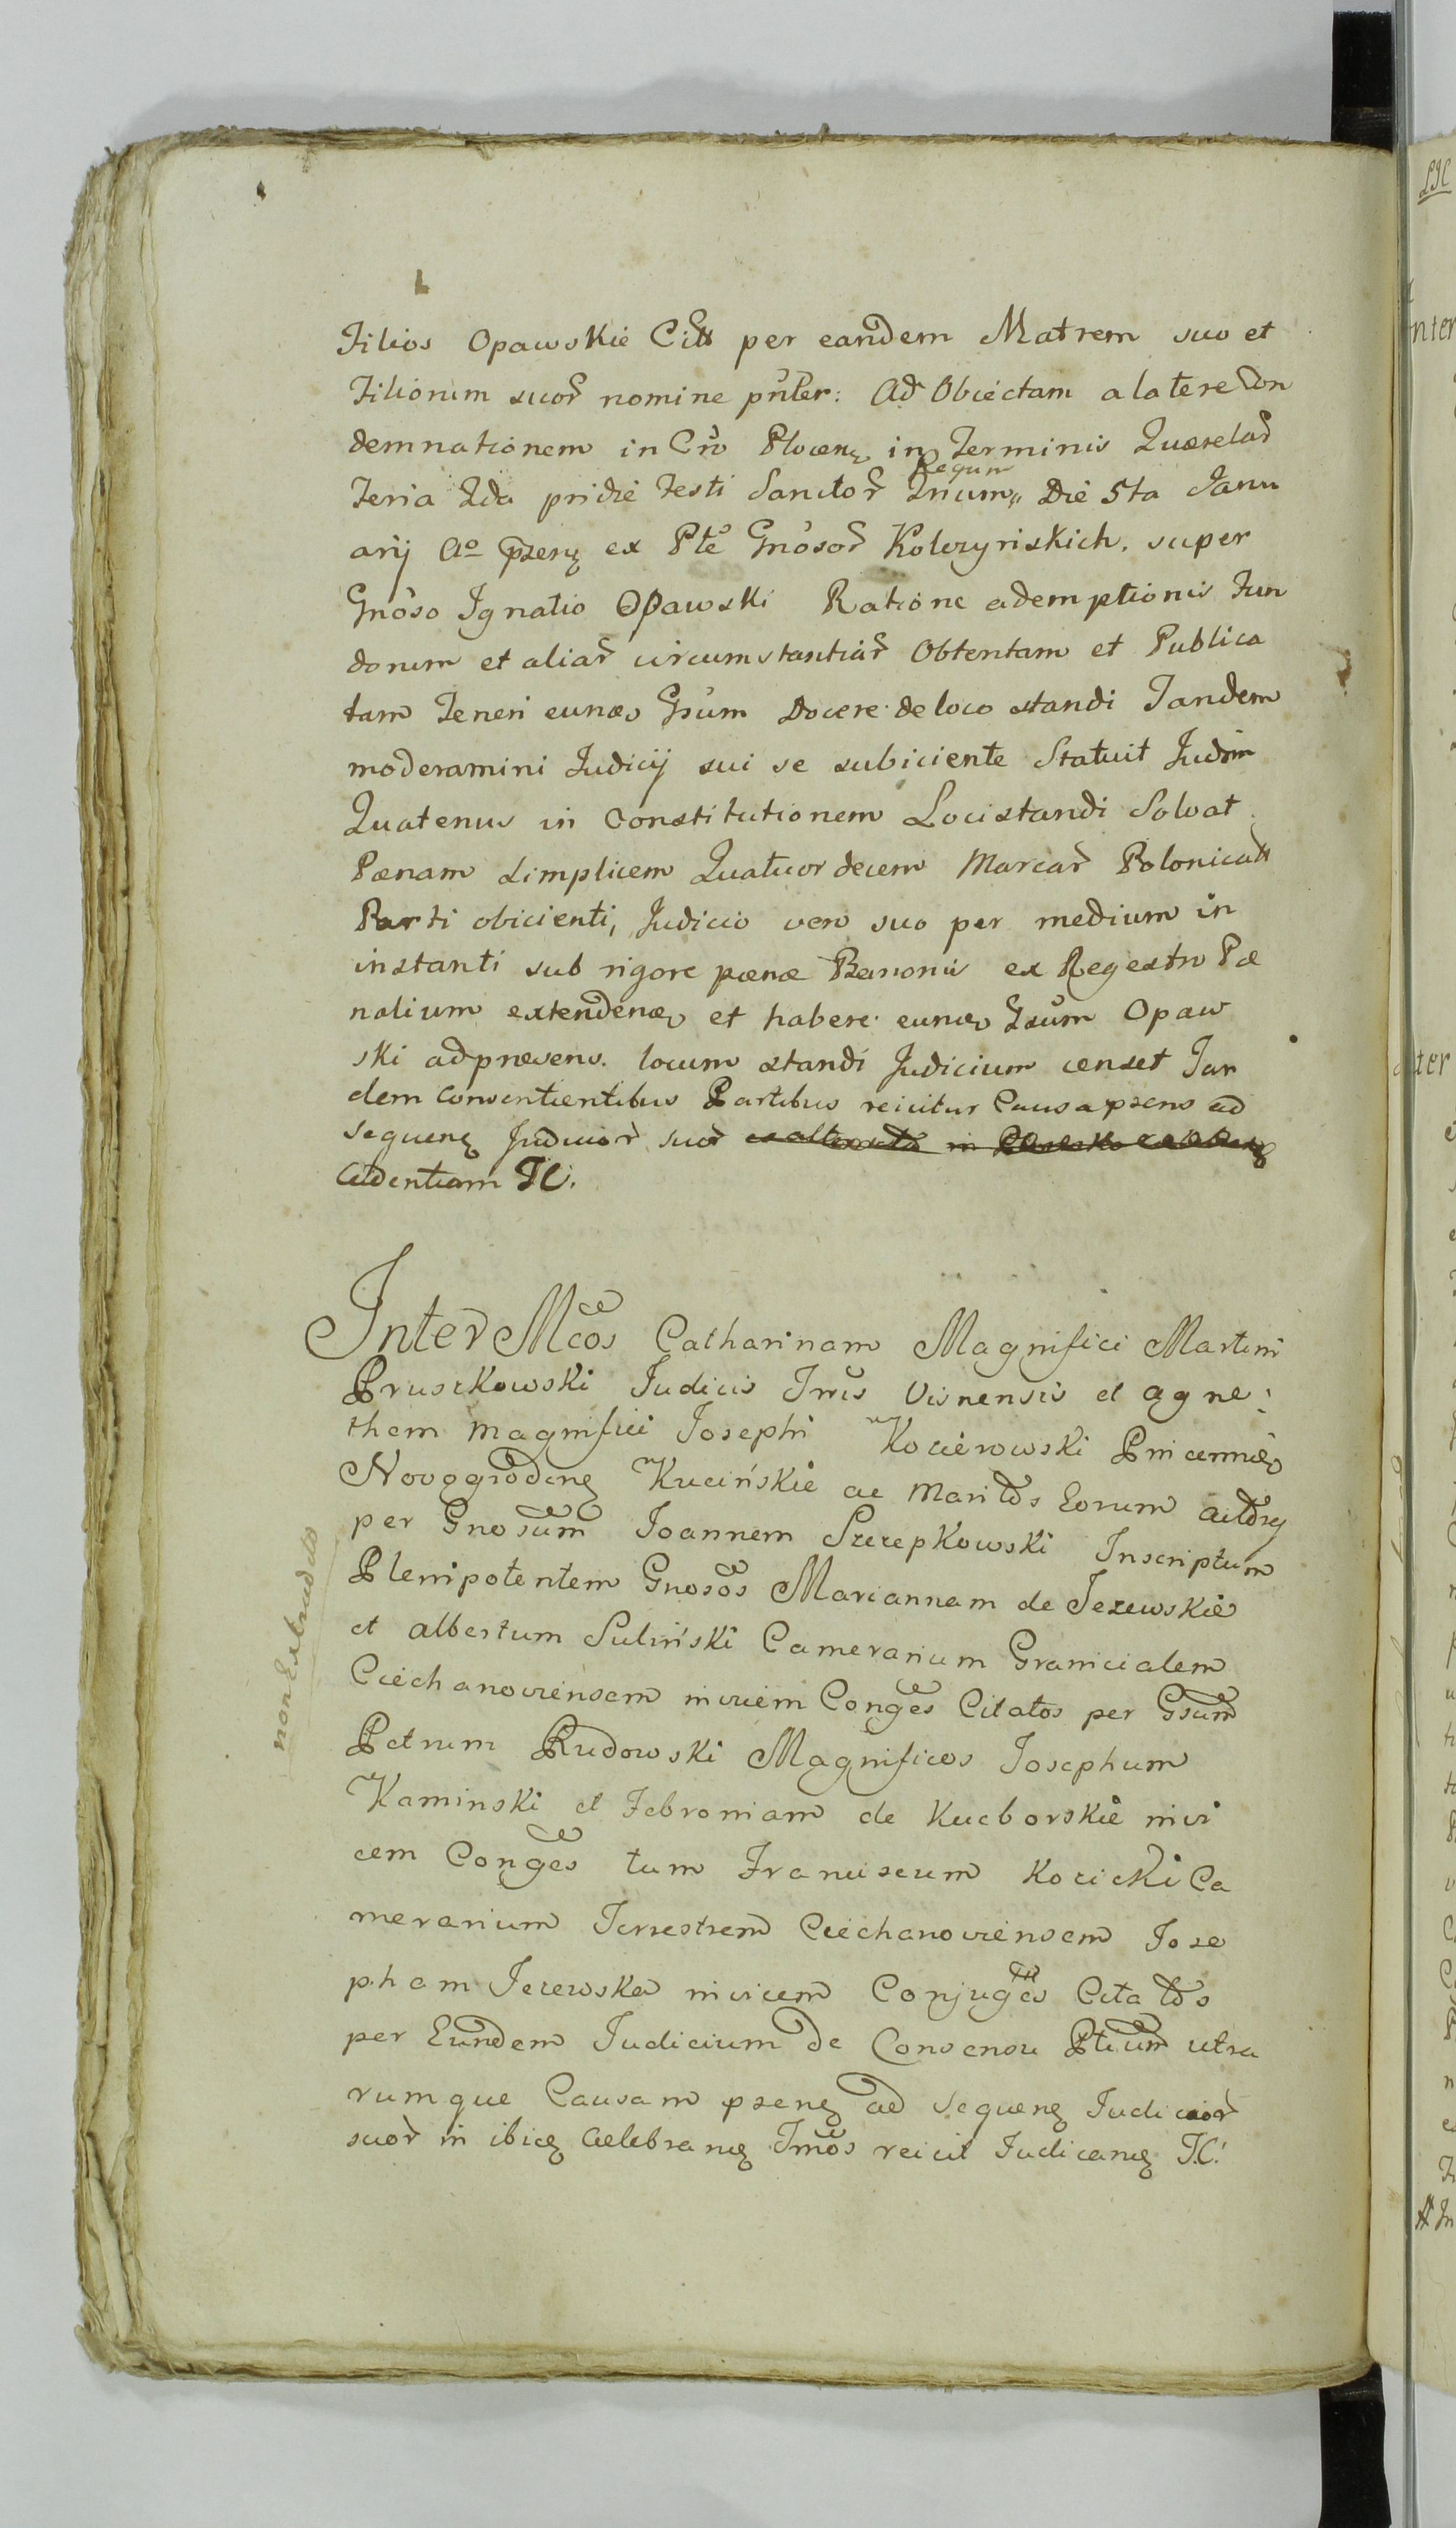 Filios Opawskie Citt per eandem Matrem suo et
Filiorum suor nomine pnter: Ad Obiectam a latere Con
demnationem in Cro Plocen in Terminis Querelar
Feria 2da pridie Festi Sanctor Trium Regum Die 5ta Janu
arij Ao pzen ex Pte Gnosor Kolczynskich. super
Gnoso Ignatio Opawski Ratione ademptionis Fun
dorum et aliar circumstantiar Obtentam et Publica
tam Teneri eund Gsum Docere de loco standi Tandem
moderamini Judicij sui se subiiciente Statuit Judm
Quatenus in Constitutionem Loci standi Solvat
Pænam simplicem Quatuordecem Marcar Polonicall
Parti obicienti, Judicio vero suo per medium in
instanti sub rigore pænæ Banonis ex Regestro Pæ
nalium extendend et habere eund Gsum Opaw
ski ad præsens locum standi Judicium censet Tan
dem Consentientibus Partibus reicitur Causa psens ad
sequen Judicior suor
Cadentiam TC.
Inter Mcos Catharinam Magnifici Martini
Pruszkowski Judicis Trris Visnensis et Agne:
them Magnifici Josephi Kocierowski Pincernid
Novogroden Kucińskie ac Maritos Eorum actores
per Gnosum Joannem Szczepkowski Inscriptum
Plenipotentem Gnosos Mariannam de Jezewskie
et Albertum Suliński Camerarium Granicialem
Ciechanoviensem invicem Conges Citatos per Gsum
Petrum Rudowski Magnificos Josephum
Kaminski et Febroniam de Kucborskie invi
cem Conges tum Franciscum Kozicki Ca
merarium Terrestrem Ciechanoviensem Jose
pham Jezewska invicem Conjuges Citatos
per Eundem Judicium de Consensu Ptium utra
rumque Causam psen ad sequen Judicior
suor in ibid Celebran Tmos reicit Judican T.C.
non Extradito